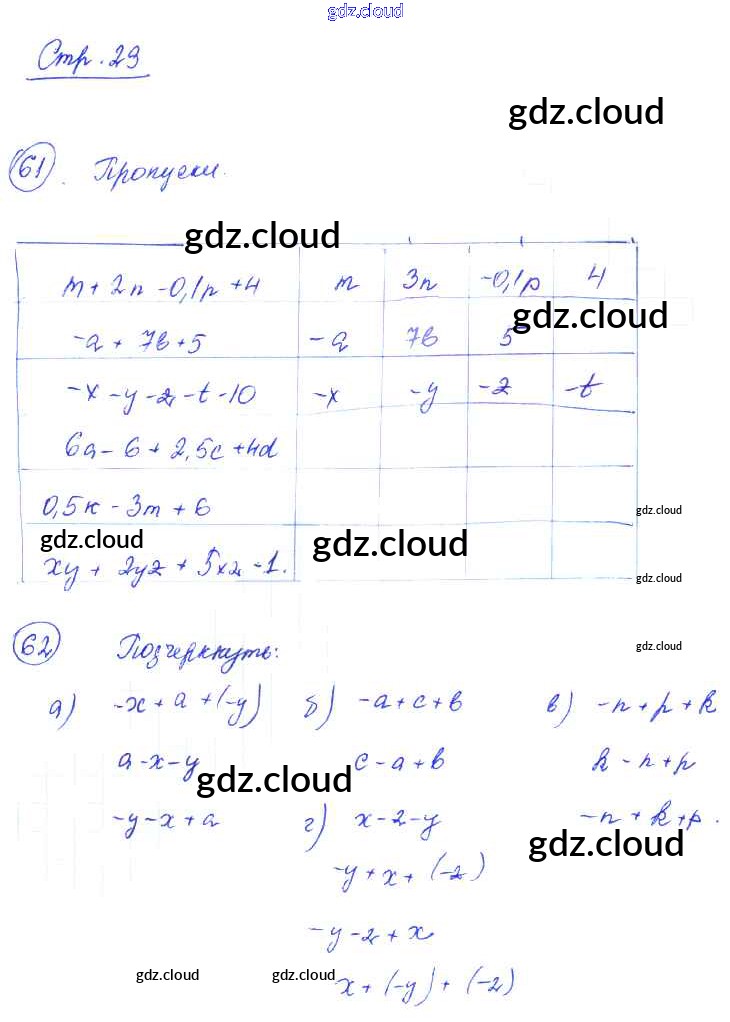 gdz.cloud
Стр. 29
gdz.cloud
61. Пропуски.
gdz.cloud
m + 2n - 0,1p + 4 m 3n -0,1p 4
gdz.cloud
-a + 7b + 5 -a 7b 5
-x - y - z - t - 10 -x -y -z -t
6a - 6 + 2,5c + 4d
0,5k - 3m + 6
gdz.cloud
gdz.cloud
gdz.cloud
xy + 2yz + 5xz - 1.
gdz.cloud
62 Подчеркнуть:
gdz.cloud
а) -x + a + (-y) б) -a + c + b в) -n + p + k
a - x - y c - a + b k - n + p
gdz.cloud
-y - x + a г) x - z - y -n + k + p.
gdz.cloud
-y + x + (-z)
-y - z + x
gdz.cloud gdz.cloud
x + (-y) + (-z)